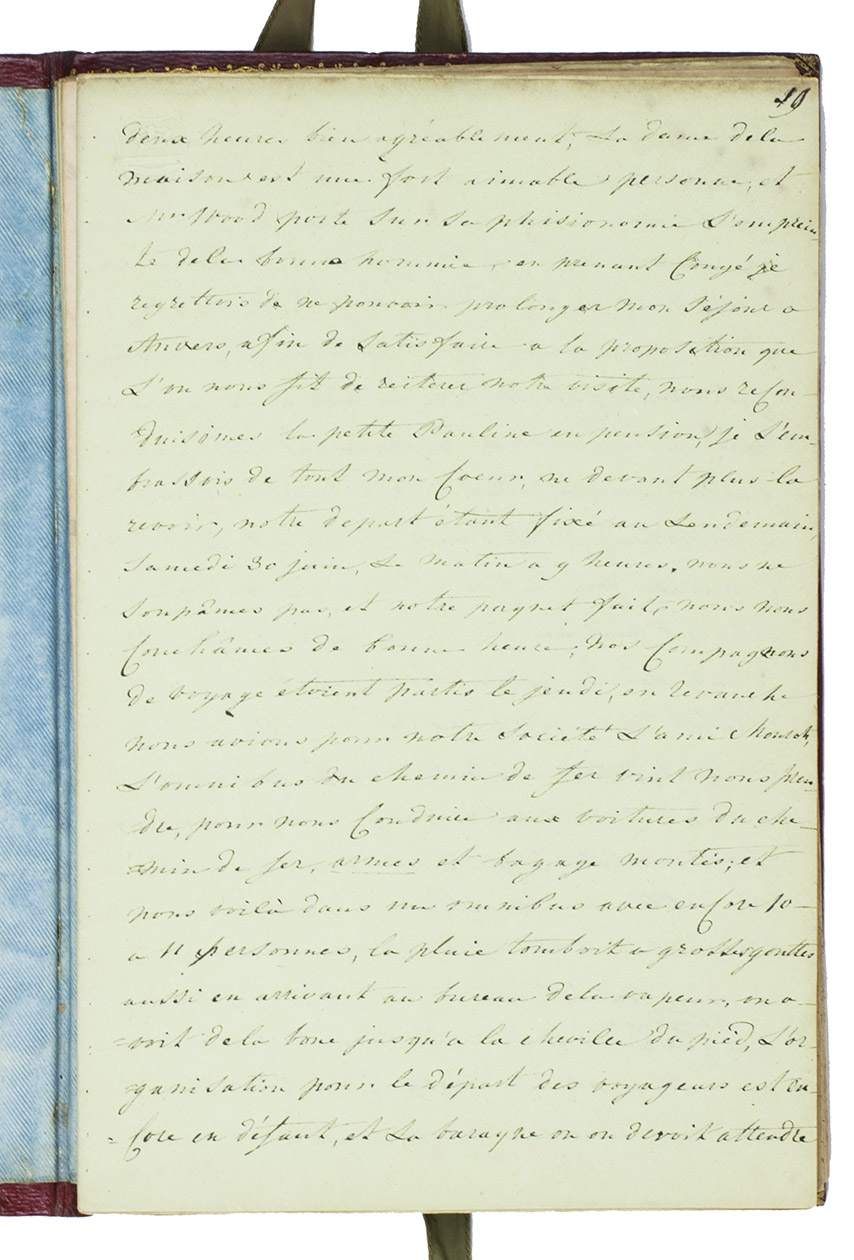 19
deux heures bien agréablement, La dame dela
maison est une fort aimable personne, et
Mr Wood porte sur sa phisionomie L'emprein-
te dela bonne hommie, en prenant Congé je
regrettois de ne pouvoir prolonger mon Séjour a
Anvers, afin de Satisfaire a la proposition que
L'on nous fit de reiterer notre visite, nous recon-
duisimes la petite Pauline en pension, je L'em-
brassois de tout mon Coeur, ne devant plus la
revoir, notre depart étant fixé au Lendemain,
Samedi 30 juin, Le matin a 9 heures. nous ne
Soupâmes pas, et notre paquet fait, nous nous
Couchâmes de bonne heure, nos Compagnons
de voyage étoient partis le jeudi, en revanche
nous avions pour notre Société L'ami
L'omnibus du chemin de fer vint nous pren-
dre, pour nous Conduire aux voitures du che-
=min de fer, armes et bagage montés, et
nous voilà dans un omnibus avec enCore 10-
a 11 personnes, la pluie tomboit a grosses gouttes
aussi en arrivant au bureau dela vapeur, on a-
=voit dela boue jusqu'a la cheville du pied, L'or-
=ganisation pour le départ des voyageurs est en-
=Core en défaut, et La baraque ou on devoit attendre